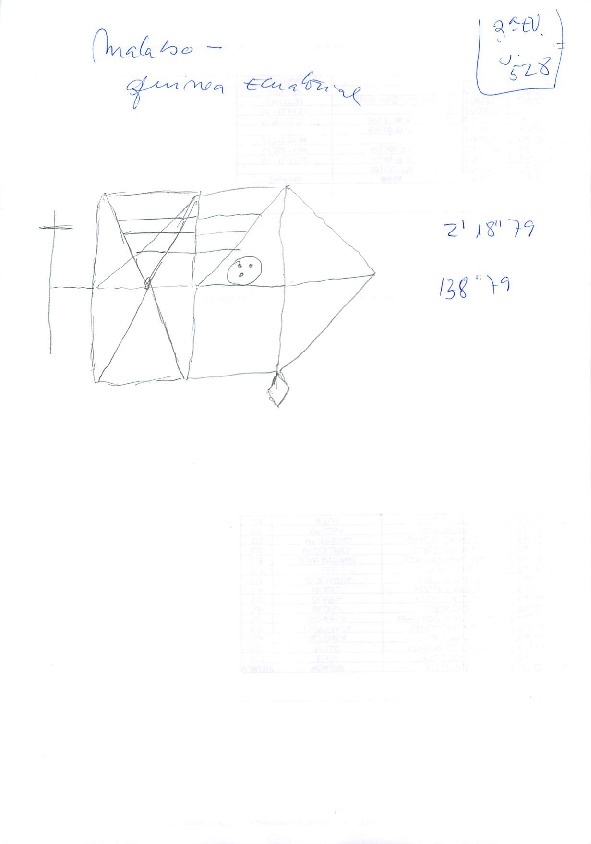 Malabo -
Guinea Ecuatorial
2ª EV.
528
2' 18" 79
138" 79